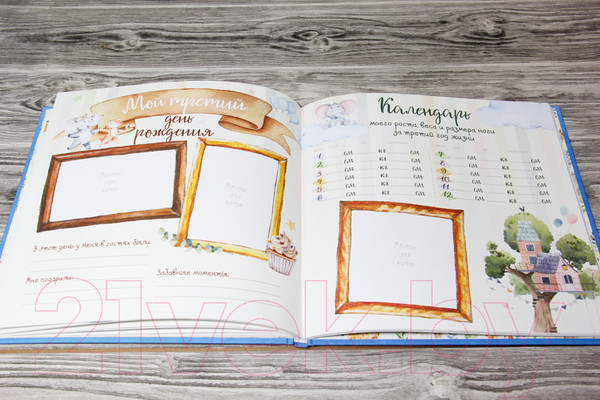 Мой третий
день
рождения
Место
для
фото
Место
для
фото
В этот день у меня в гостях были:
Мне подарили:
Забавные моменты:
Календарь
моего роста, веса и размера ноги
за третий год жизни
1 кг см 7 кг см
2 кг см 8 кг см
3 кг см 9 кг см
4 кг см 10 кг см
5 кг см 11 кг см
6 кг см 12 кг см
Место
для
фото
21vek.by